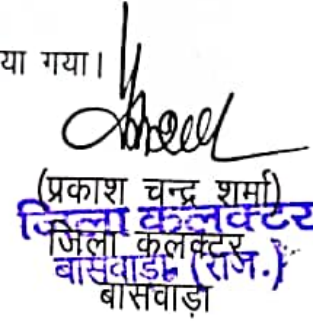 या गया।
(प्रकाश चन्द्र शर्मा)
जिला कलक्टर
जिला कलक्टर
बांसवाड़ा (राज.)
बांसवाड़ा